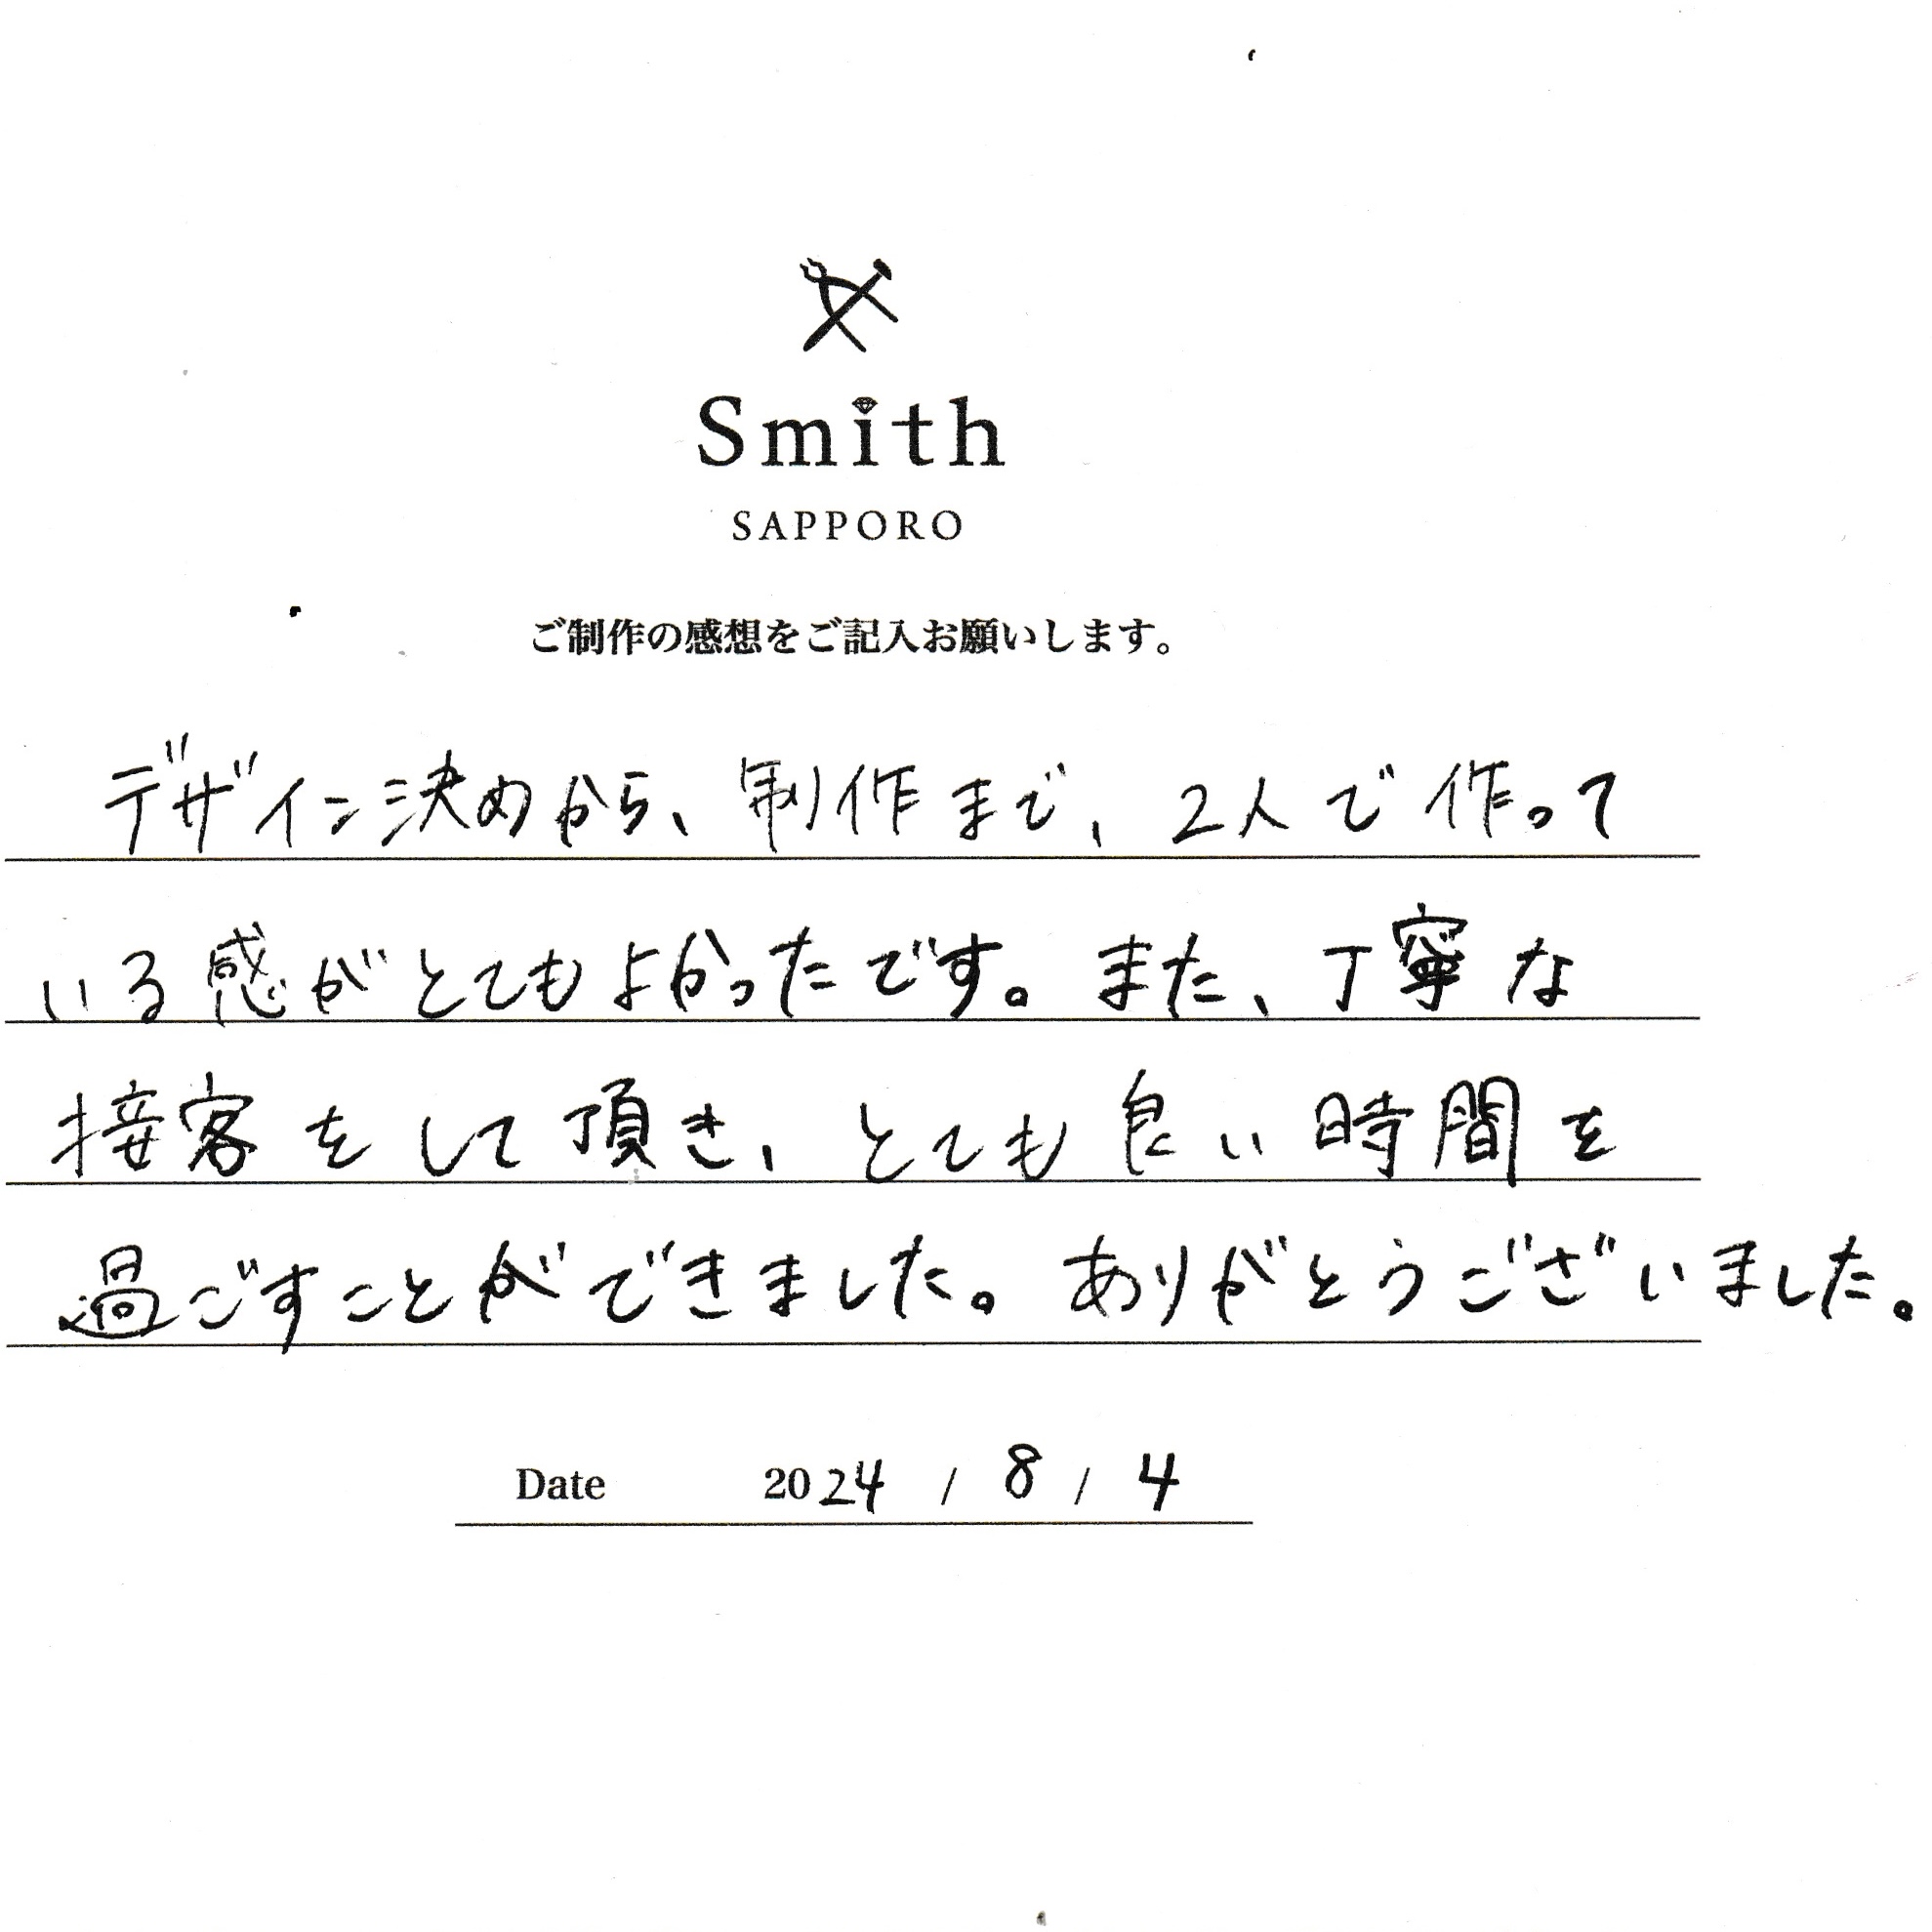 Smith
SAPPORO
ご制作の感想をご記入お願いします。
デザイン決めから、制作まで、2人で作って
いる感がとてもよかったです。また、丁寧な
接客をして頂き、とても良い時間を
過ごすことができました。ありがとうございました。
Date 2024 / 8 / 4